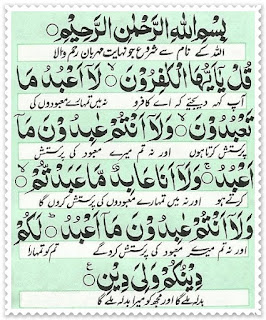 بِسْمِ اللّٰهِ الرَّحْمٰنِ الرَّحِيْمِ ○
اللہ کے نام سے شروع جو نہایت مہربان رحم والا
قُلْ يٰۤاَيُّهَا الْكٰفِرُوْنَ ○ لَاۤ اَعْبُدُ مَا
آپ کہہ دیجئے کہ اے کافرو نہ میں تمہارے معبودوں کی
تَعْبُدُوْنَ ○ وَلَاۤ اَنْتُمْ عٰبِدُوْنَ مَاۤ
پرستش کرتا ہوں اور نہ تم میرے معبود کی پرستش
اَعْبُدُ ○ وَلَاۤ اَنَا عَابِدٌ مَّا عَبَدْتُّمْ ○
کرتے ہو اور نہ میں تمہارے معبودوں کی پرستش کروں گا
وَلَاۤ اَنْتُمْ عٰبِدُوْنَ مَاۤ اَعْبُدُ ○ لَكُمْ
اور نہ تم میرے معبود کی پرستش کرو گے تم کو تمہارا
دِيْنُكُمْ وَلِيَ دِيْنِ ○ ع
بدلہ ملے گا اور مجھ کو میرا بدلہ ملے گا